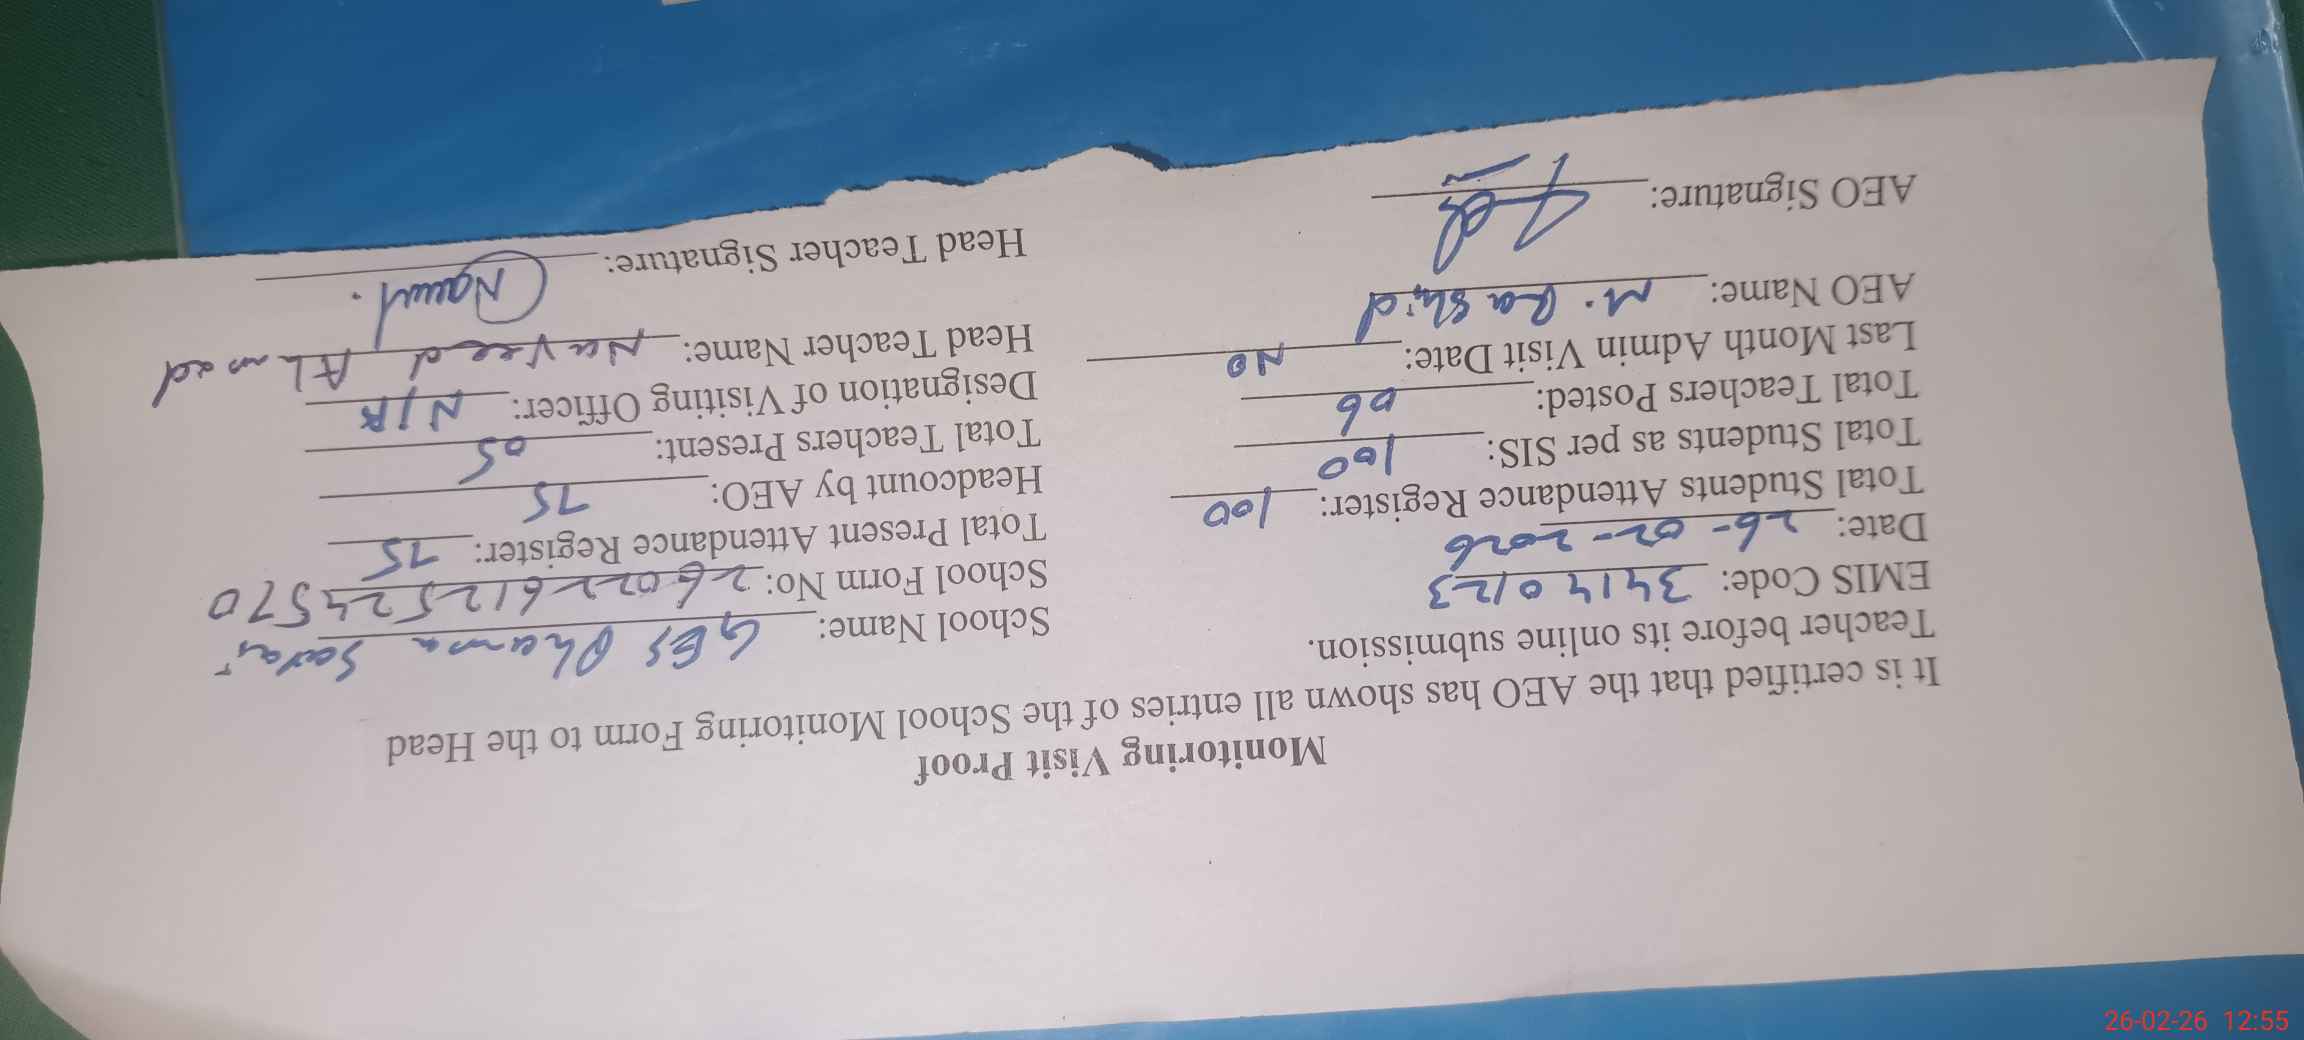 Monitoring Visit Proof
It is certified that the AEO has shown all entries of the School Monitoring Form to the Head
Teacher before its online submission.
EMIS Code: 34140123
Date: 26-02-2026
Total Students Attendance Register: 100
Total Students as per SIS: 100
Total Teachers Posted: 06
Last Month Admin Visit Date: No
AEO Name: M. Rashid
AEO Signature:
School Name: GES Dhama Sarai
School Form No: 26022612524570
Total Present Attendance Register: 75
Headcount by AEO: 75
Total Teachers Present: 05
Designation of Visiting Officer: N/A
Head Teacher Name: Naveed Ahmad
Head Teacher Signature: Naveed.
26-02-26 12:55